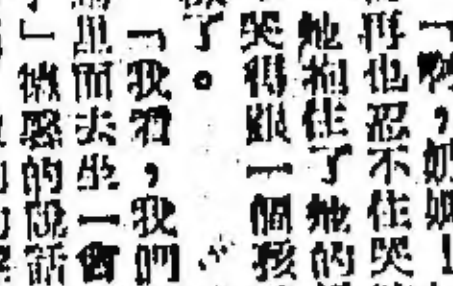 「啊，奶奶！
再也忍不住哭
她抱住了她的
哭得跟一個孩
了。
「我看，我們
里面去坐一會
」的說話